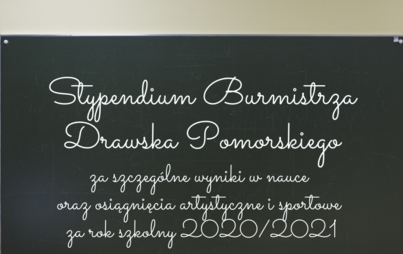 Stypendium Burmistrza
Drawska Pomorskiego
za szczególne wyniki w nauce
oraz osiągnięcia artystyczne i sportowe
za rok szkolny 2020/2021